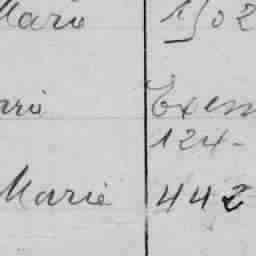 Marie 1502
rie Exem
124-
Marie 442